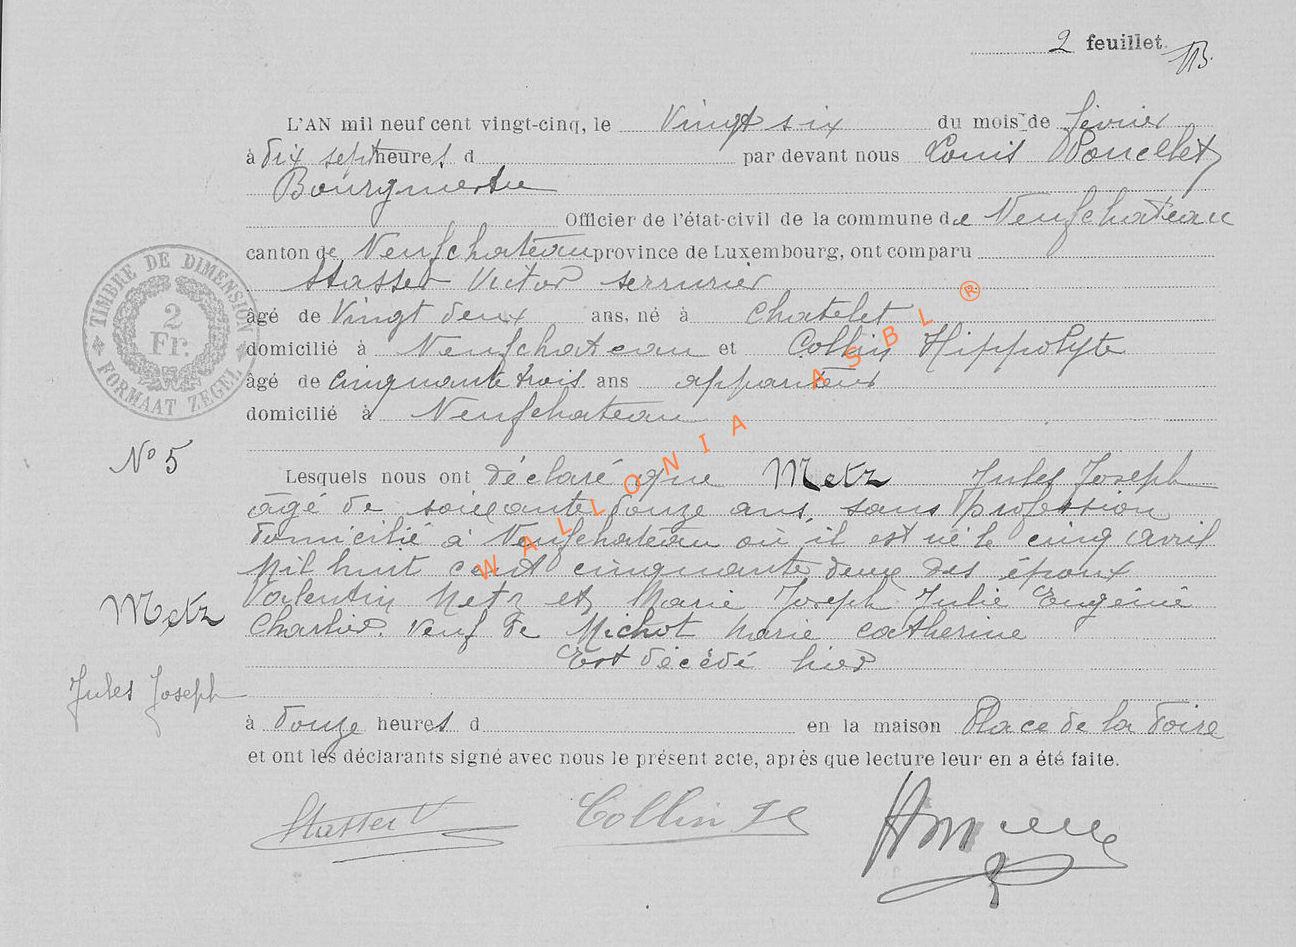 2 feuillet.
L'AN mil neuf cent vingt-cinq, le Vingt six du mois de février
à Dix sept heures d par devant nous Louis Poncelet
Bourgmestre
Officier de l'état-civil de la commune de Neufchateau
canton de Neufchateau province de Luxembourg, ont comparu
Stasser Victor serrurier
âgé de Vingt deux ans, né à Chatelet
domicilié à Neufchateau et Collin Hippolyte
âgé de Cinquante trois ans appariteur
domicilié à Neufchateau
TIMBRE DE DIMENSION
2
Fr.
FORMAAT ZEGEL
No 5
Lesquels nous ont déclaré que Metz Jules Joseph
âgé de soixante douze ans, sans Profession
domicilié à Neufchateau où il est né le cinq avril
Mil huit cent cinquante deux des époux
Valentin Metz et Marie Joseph Julie Eugénie
Charlier. Veuf de Michot Marie Catherine
Est décédé hier
Metz
Jules Joseph
à Douze heures d en la maison Place de la Foire
et ont les déclarants signé avec nous le présent acte, après que lecture leur en a été faite.
Stasser V Collin
WALLONIA ASBL ®